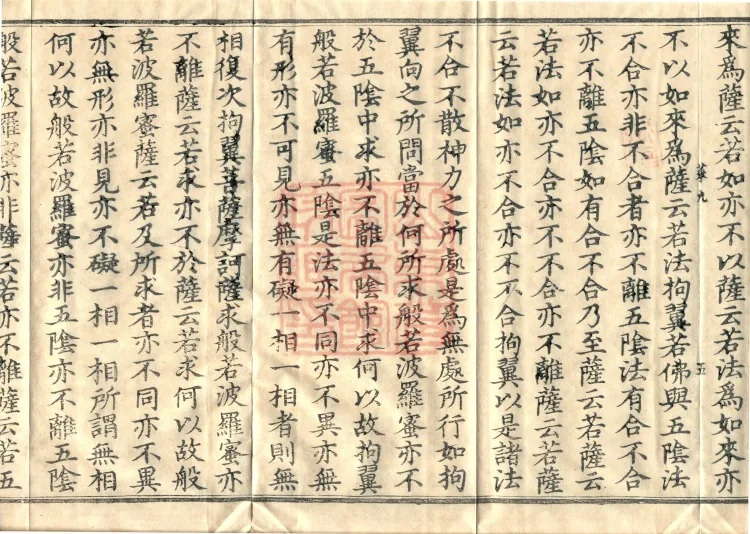 來爲薩云若如亦不以薩云若法爲如來亦
不以如來爲薩云若法拘翼若佛與五陰法
九 五
不合亦非不合者亦不離五陰法有合不合
亦不離五陰如有合不合乃至薩云若薩云
若法如亦不合亦不不合亦不離薩云若薩
云若法如亦不合亦不不合拘翼以是諸法
不合不散神力之所處是爲無處所行如拘
翼向之所問當於何所求般若波羅蜜亦不
於五陰中求亦不離五陰中求何以故拘翼
般若波羅蜜五陰是法亦不同亦不異亦無
有形亦不可見亦無有礙一相一相者則無
相復次拘翼菩薩摩訶薩求般若波羅蜜亦
不離薩云若求亦不於薩云若求何以故般
若波羅蜜薩云若及所求者亦不同亦不異
亦無形亦非見亦不礙一相一相所謂無相
何以故般若波羅蜜亦非五陰亦不離五陰
般若波羅蜜亦非薩云若亦不離薩云若五